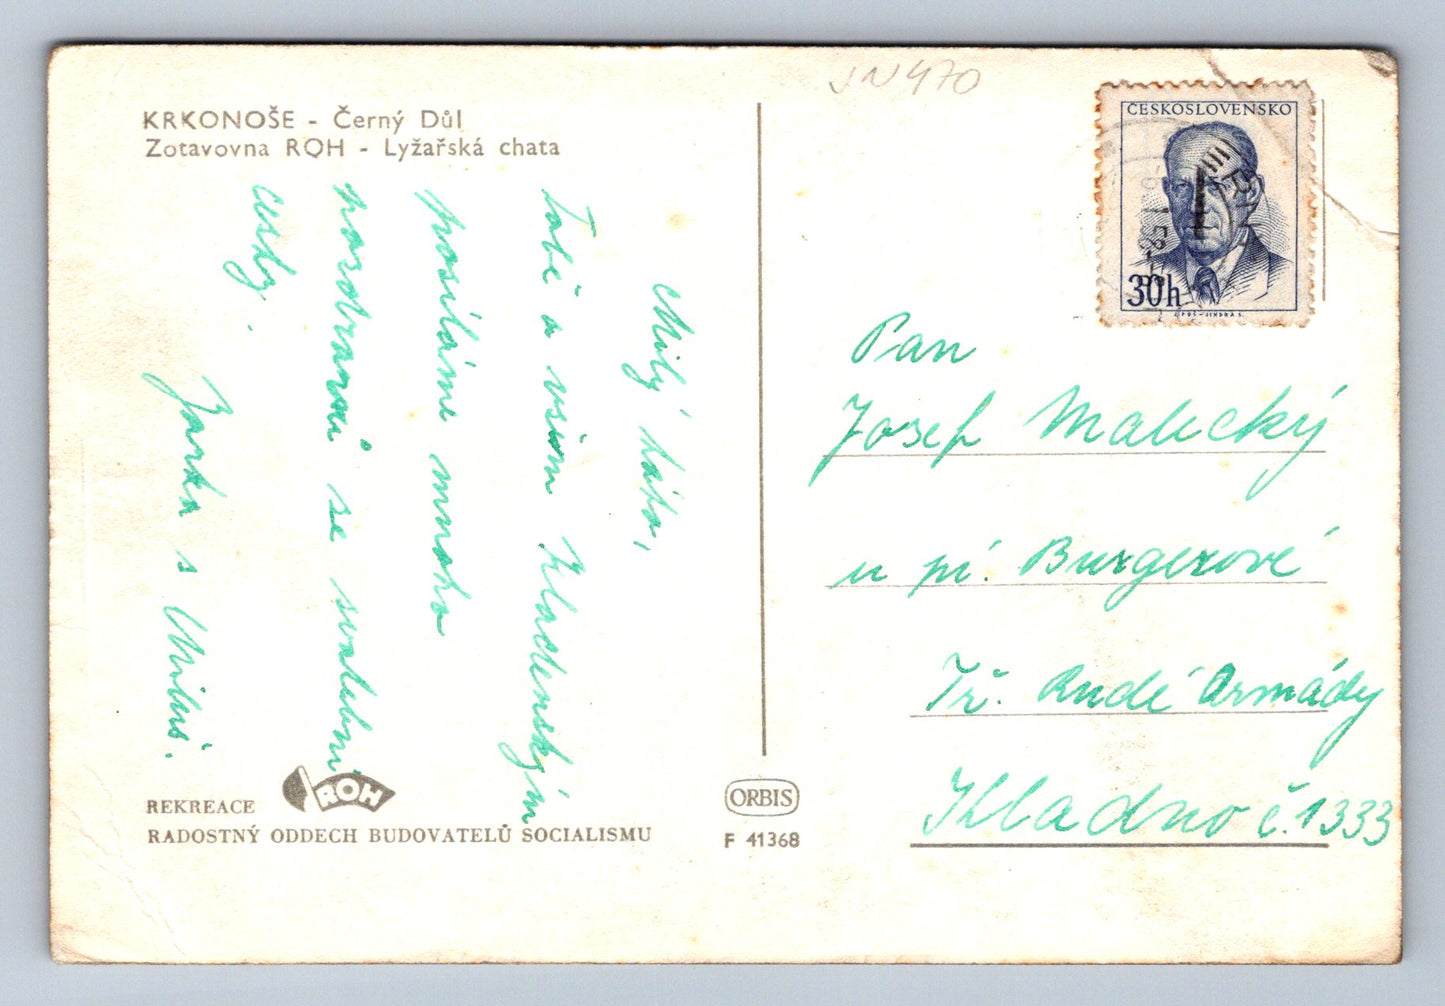 KRKONOŠE - Černý Důl
Zotavovna ROH - Lyžařská chata
Milý táto,
Tobě a všem Kladenským
posíláme mnoho
pozdravů se svatební
cesty.
Jarka s Miluš.
REKREACE
ROH
RADOSTNÝ ODDECH BUDOVATELŮ SOCIALISMU
ORBIS
F 41368
JN470
ČESKOSLOVENSKO
30h
Pan
Josef Malecký
u pí. Burgerové
Tř. Rudé Armády
Kladno č. 1333